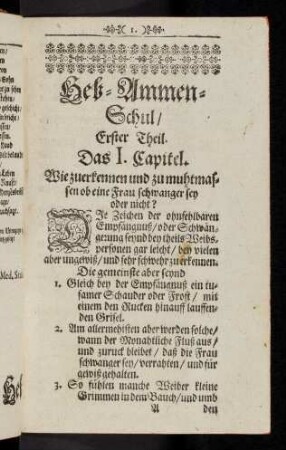 1.
Heb-Ammen-
Schul/
Erster Theil.
Das I. Capitel.
Wie zuerkennen und zu muhtmas-
sen ob eine Frau schwanger sey
oder nicht?
DIe Zeichen der ohnfehlbaren
Empfängnuß/ oder Schwän-
gerung seynd bey theils Weibs-
personen gar leicht/ bey vielen
aber ungewiß/ und sehr schwehr zu erkennen.
Die gemeinste aber seynd
1. Gleich bey der Empfängnuß ein
samer Schauder oder Frost/ mit
einem den Rucken hinauff lauffen-
den Grisel.
2. Am allermehisten aber werden solche/
wann der Monahtliche Fluß aus/
und zuruck bleibet/ daß die Frau
schwanger sey/ verrahten/ und für
gewiß gehalten.
3. So fühlen manche Weiber kleine
Grimmen in dem Bauch/ und umb
A den